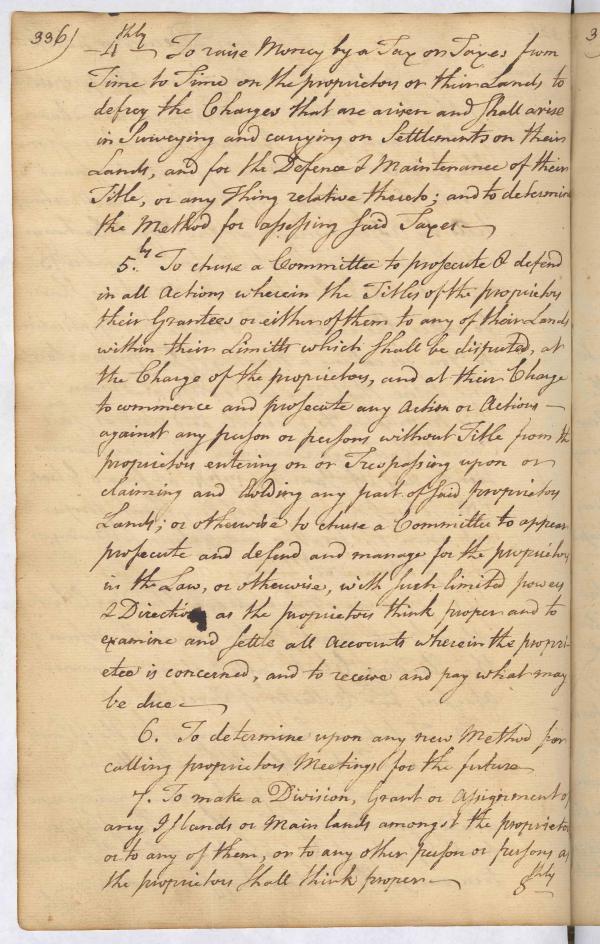 336)
4thly To raise Money by a Tax or Taxes from
Time to Time on the proprietors or their Lands to
defrey the Charges that are arisen and shall arise
in Surveying and carrying on Settlements on their
Lands, and for the Defence & Maintenance of their
Title, or any Thing relative thereto; and to determin
the Method for assessing said Taxes —
5.ly To chuse a Committee to prosecute & defend
in all Actions wherein the Titles of the proprietors
their Grantees or either of them to any of their Lands
within their Limitts which shall be disputed, at
the Charge of the proprietors, and at their Charge
to commence and prosecute any Action or Actions —
against any person or persons without Title from the
proprietors entering on or Trespassing upon or
claiming and Holding any part of said proprietors
Lands; or otherwise to chuse a Committee to appear
prosecute and defend and manage for the proprietors
in the Law, or otherwise, with such limited powers
& Direction as the proprietors think proper and to
examine and settle all Accounts wherein the propri-
etee is concerned, and to receive and pay what may
be due —
6. To determine upon any new Method for
calling proprietors Meetings for the future
7. To make a Division, Grant or Assignment of
any Islands or Main lands amongst the proprietors
or to any of them, or to any other person or persons as
the proprietors shall think proper —
8thly
3